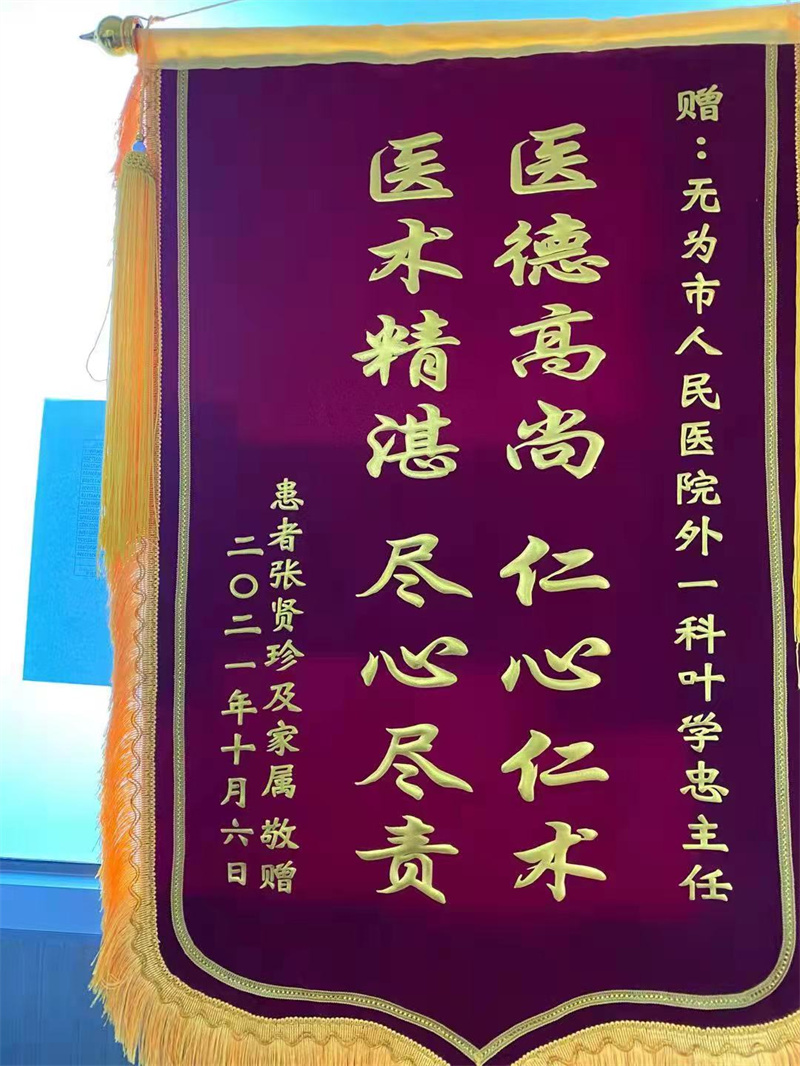 赠：无为市人民医院外一科叶学忠主任
医德高尚 仁心仁术
医术精湛 尽心尽责
患者张贤珍及家属 敬赠
二〇二一年十月六日